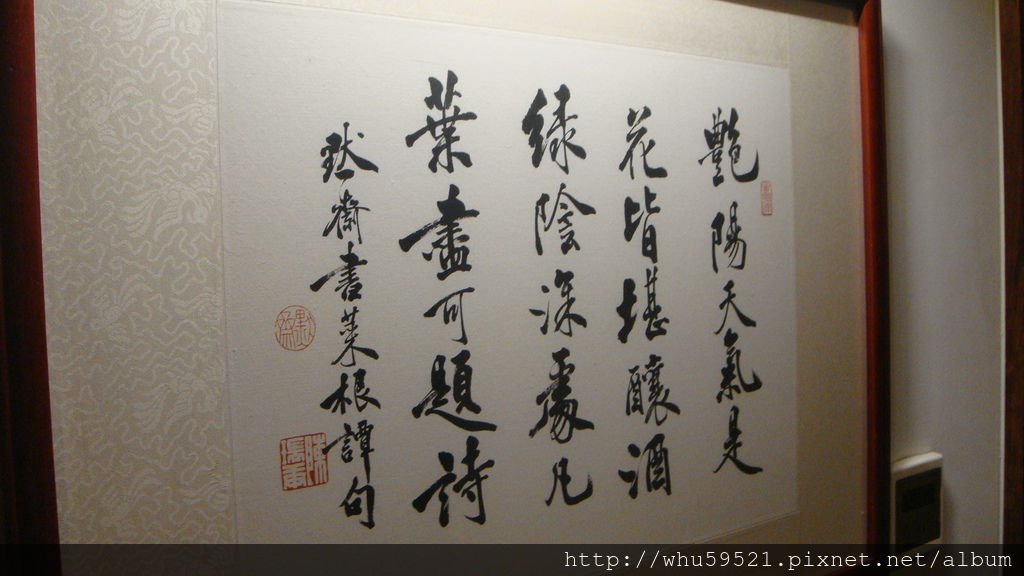 艷陽天氣是
花皆堪釀酒
綠陰深處凡
葉盡可題詩
默齋書菜根譚句
http://whu59521.pixnet.net/album